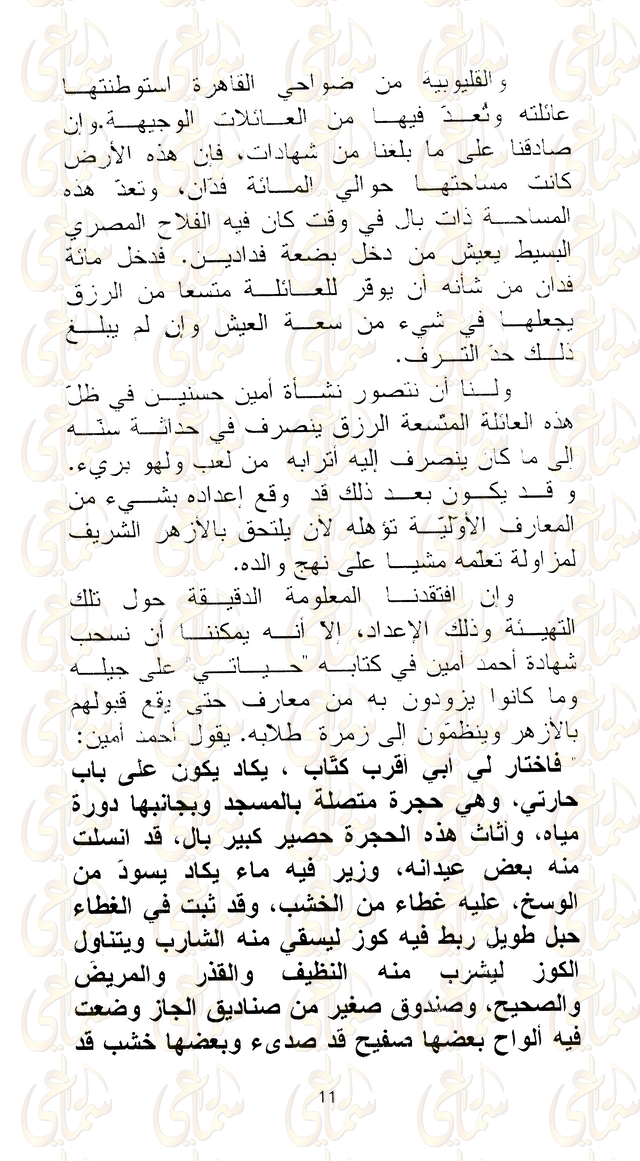 والقليوبية من ضواحي القاهرة استوطنتها
عائلته وتُعدّ فيها من العائلات الوجيهة.وإن
صادقنا على ما بلغنا من شهادات، فإن هذه الأرض
كانت مساحتها حوالي المائة فدّان، وتعدّ هذه
المساحة ذات بال في وقت كان فيه الفلاح المصري
البسيط يعيش من دخل بضعة فدادين. فدخل مائة
فدان من شأنه أن يوفّر للعائلة متسعا من الرزق
يجعلها في شيء من سعة العيش وإن لم يبلغ
ذلك حدّ الترف.
ولنا أن نتصور نشأة أمين حسنين في ظلّ
هذه العائلة المتّسعة الرزق ينصرف في حداثة سنّه
إلى ما كان ينصرف إليه أترابه من لعب ولهو بريء.
و قد يكون بعد ذلك قد وقع إعداده بشيء من
المعارف الأوّليّة تؤهله لأن يلتحق بالأزهر الشريف
لمزاولة تعلّمه مشيا على نهج والده.
وإن افتقدنا المعلومة الدقيقة حول تلك
التهيئة وذلك الإعداد، إلا أنه يمكننا أن نسحب
شهادة أحمد أمين في كتابه "حياتي" على جيله
وما كانوا يزودون به من معارف حتى يقع قبولهم
بالأزهر وينظمّون الى زمرة طلابه. يقول أحمد أمين:
" فاختار لي أبي أقرب كتّاب ، يكاد يكون على باب
حارتي، وهي حجرة متصلة بالمسجد وبجانبها دورة
مياه، وأثاث هذه الحجرة حصير كبير بال، قد انسلت
منه بعض عيدانه، وزير فيه ماء يكاد يسودّ من
الوسخ، عليه غطاء من الخشب، وقد ثبت في الغطاء
حبل طويل ربط فيه كوز ليسقي منه الشارب ويتناول
الكوز ليشرب منه النظيف والقذر والمريض
والصحيح، وصندوق صغير من صناديق الجاز وضعت
فيه ألواح بعضها صفيح قد صدىء وبعضها خشب قد
11